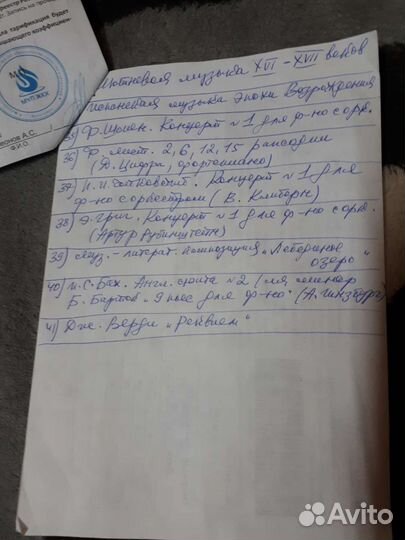 еестр Ро
г. Запись на прове
па тарификации будет
ышающего коэффициен-
МУП ЖКХ
еонов А.С.
Ф.И.О.
музыка XVI - XVII веков
музыка эпохи Возрождения
35) Ф. Шопен. Концерт №1 для ф-но с орк.
36) Ф. Лист. 2, 6, 12, 15 рапсодии
(Д. Циффра, фортепиано)
37) П. И. Чайковский. Концерт №1 для
ф-но с оркестром (В. Клиберн)
38) Э. Григ. Концерт №1 для ф-но с орк.
(Артур Рубинштейн)
39) Муз.-литерат. композиция "Лебединое
озеро"
40) И. С. Бах. Англ. сюита №2 (ля минор
Б. Барток "9 пьес для ф-но" (А. Гинзбург)
41) Дж. Верди "Реквием"
Avito